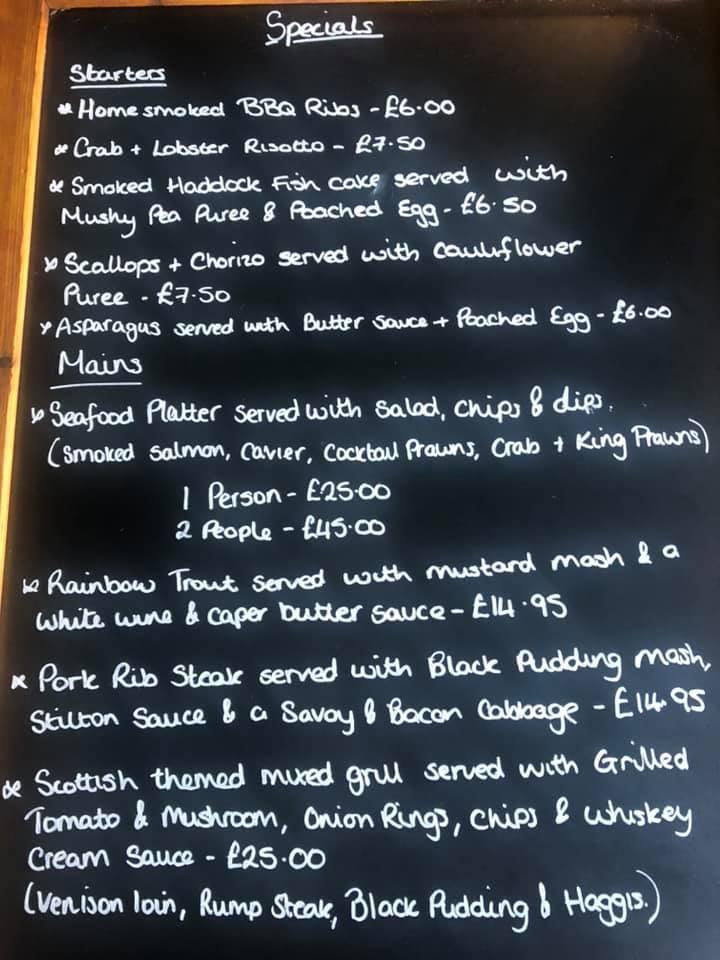 Specials
Starters
* Home smoked BBQ Ribs - £6.00
* Crab + Lobster Risotto - £7.50
* Smoked Haddock Fish cake served with
Mushy Pea Puree & Poached Egg - £6.50
* Scallops + Chorizo served with cauliflower
Puree - £7.50
* Asparagus served with Butter Sauce + Poached Egg - £6.00
Mains
* Seafood Platter served with salad, chips & dips.
(Smoked salmon, Cavier, Cocktail Prawns, Crab + King Prawns)
1 Person - £25.00
2 People - £45.00
* Rainbow Trout served with mustard mash & a
white wine & caper butter sauce - £14.95
* Pork Rib Steak served with Black Pudding mash,
Stilton Sauce & a Savoy & Bacon Cabbage - £14.95
* Scottish themed mixed grill served with Grilled
Tomato & Mushroom, Onion Rings, chips & whiskey
Cream Sauce - £25.00
(Venison loin, Rump Steak, Black Pudding & Haggis.)